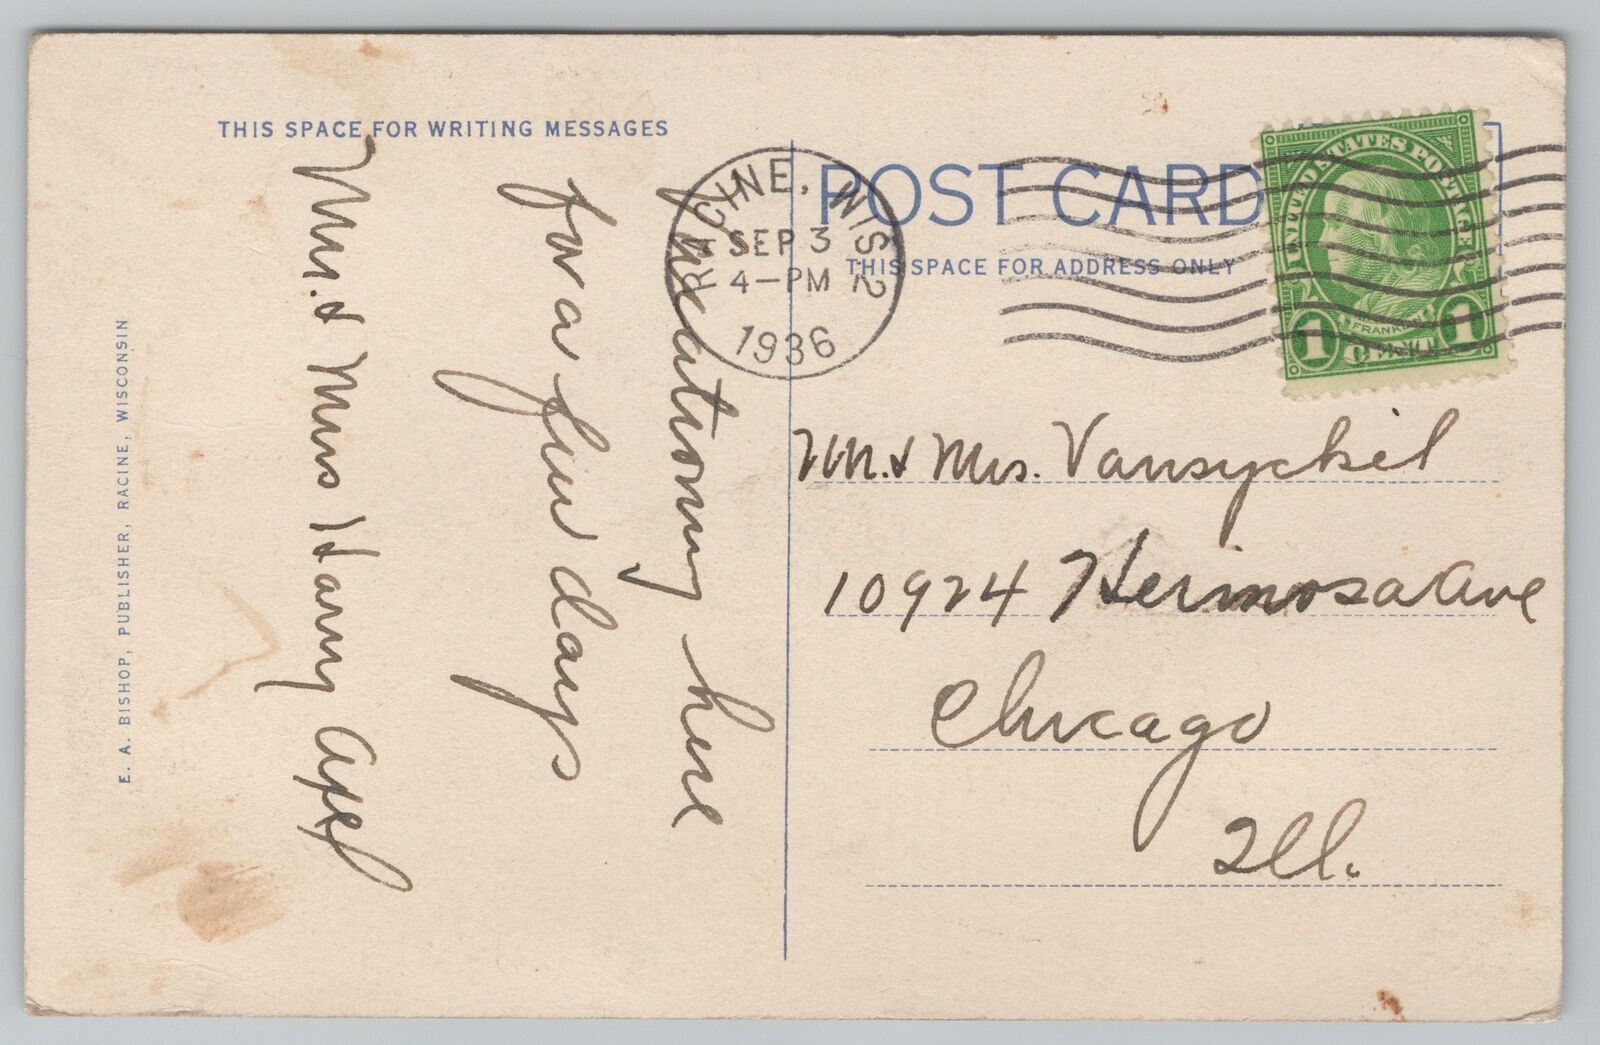 THIS SPACE FOR WRITING MESSAGES
Vacationing here
for a few days
Mr. & Mrs Harry Apel
E. A. BISHOP, PUBLISHER, RACINE, WISCONSIN
RACINE, WIS. 2
SEP 3
4-PM
1936
POST CARD
THIS SPACE FOR ADDRESS ONLY
UNITED STATES POSTAGE
FRANKLIN
1 CENT 1
Mr. & Mrs. Vansyckel
10924 Hermosa Ave
Chicago
Ill.